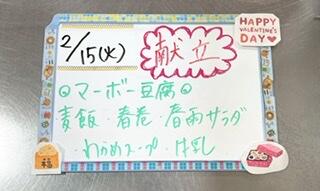 HAPPY
VALENTINE'S
DAY
2/15(火)
献立
◎マーボー豆腐◎
麦飯・春巻・春雨サラダ
・わかめスープ・牛乳
福